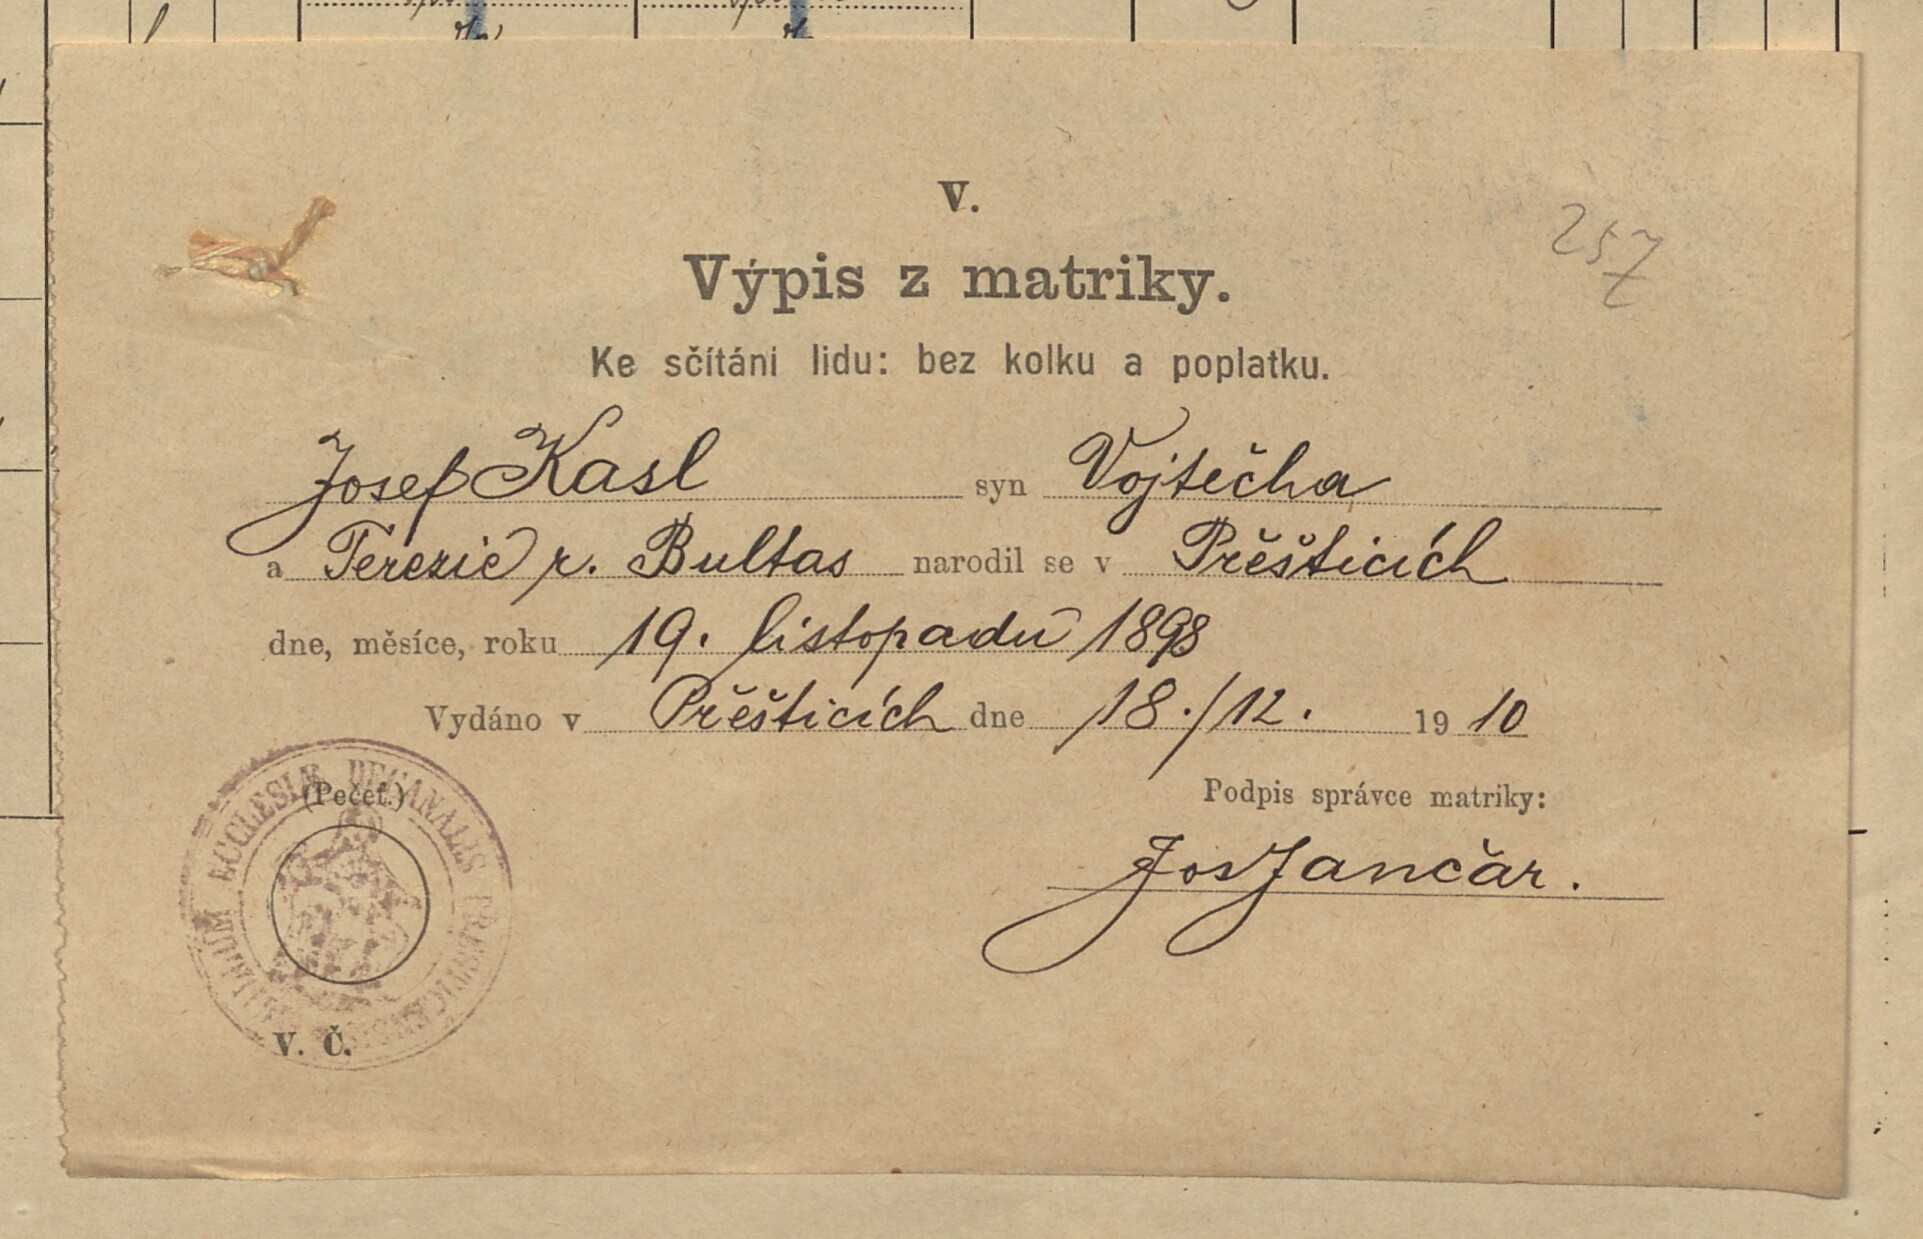 257
V.
Výpis z matriky.
Ke sčítání lidu: bez kolku a poplatku.
Josef Kasl syn Vojtěcha
a Terezie r. Bultas narodil se v Přešticích
dne, měsíce, roku 19. listopadu 1898
Vydáno v Přešticích dne 18./12. 1910
(Pečeť.)
Podpis správce matriky:
Jos Jančar.
ECCLESIÆ DECANALIS
V. Č.